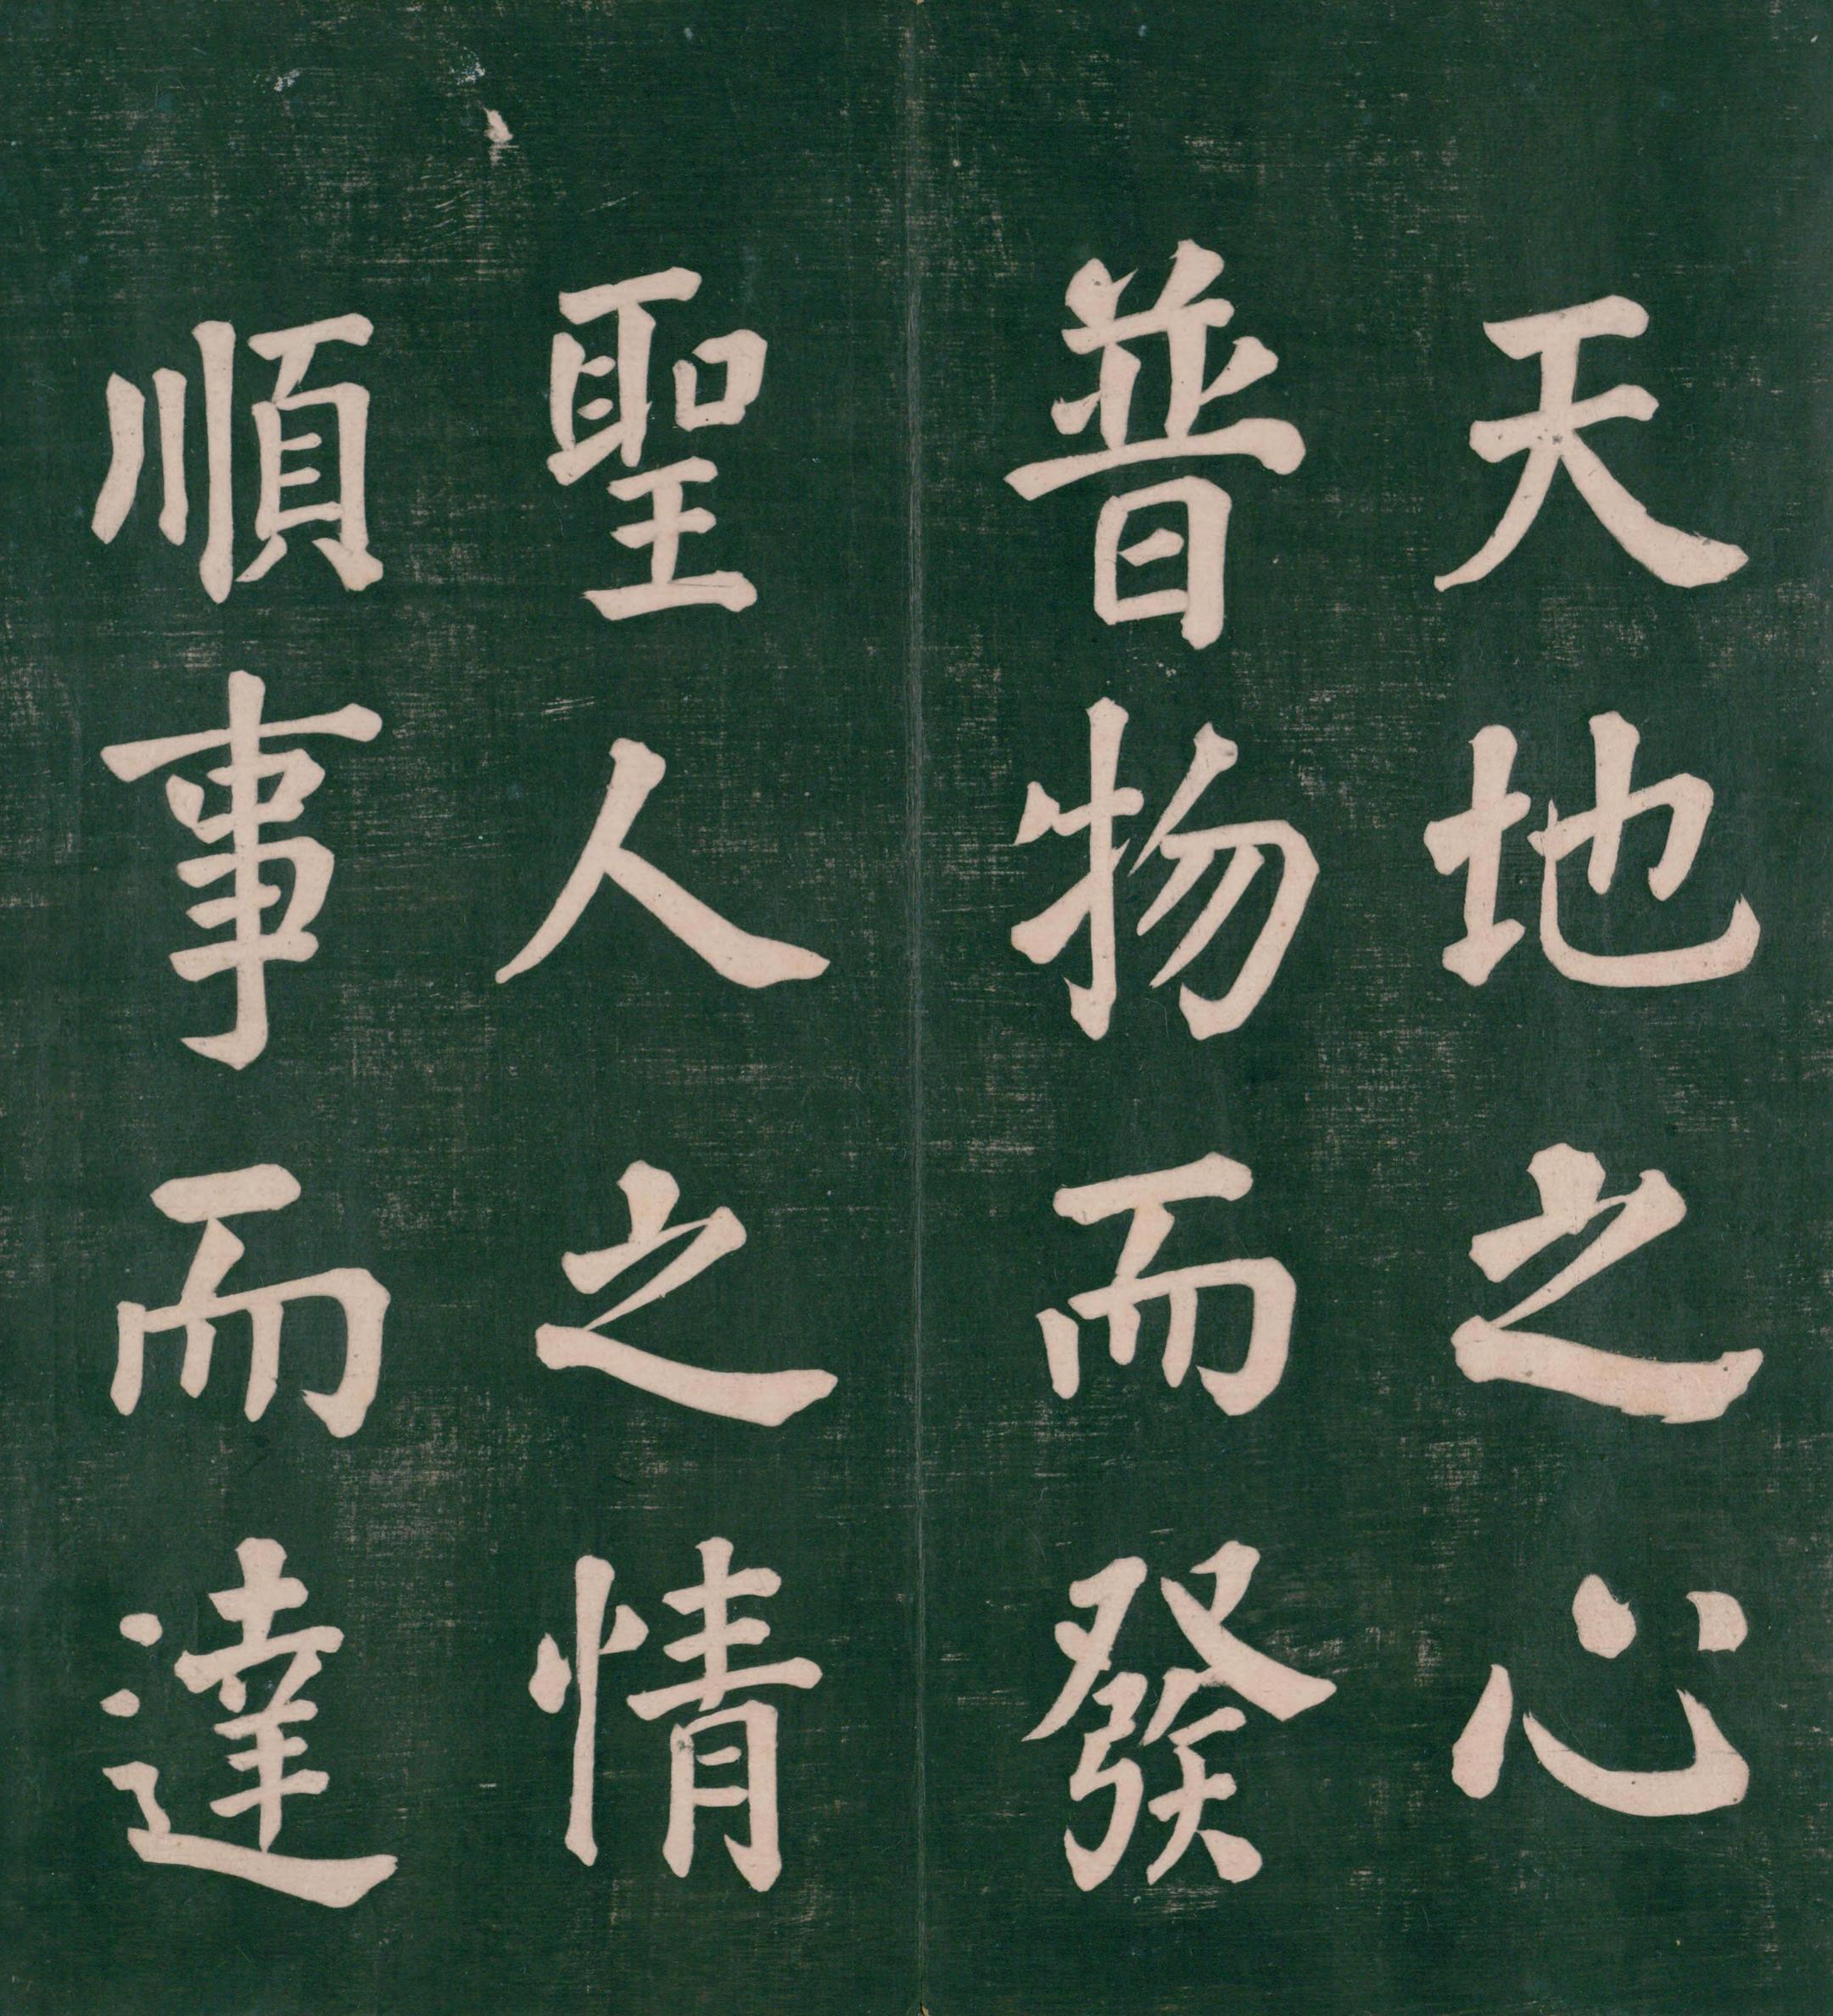 天地之心
普物而發
聖人之情
順事而達